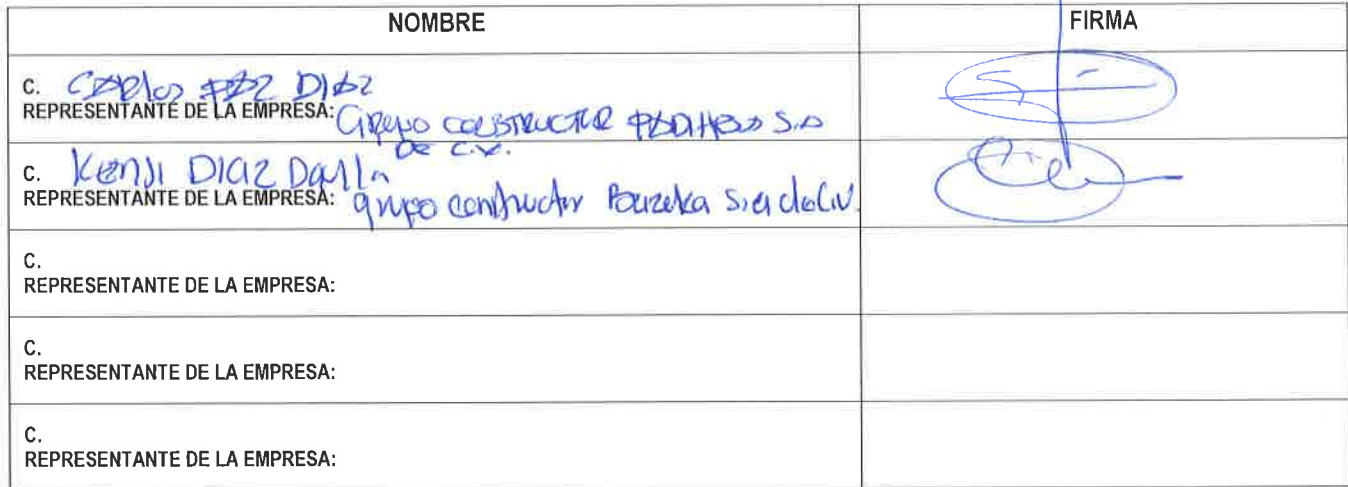 NOMBRE
FIRMA
C. Carlos Paz Diaz
REPRESENTANTE DE LA EMPRESA: Grupo CONSTRUCTOR S.A
DE C.V.
C. Kenji Diaz
REPRESENTANTE DE LA EMPRESA: grupo constructor
C.
REPRESENTANTE DE LA EMPRESA:
C.
REPRESENTANTE DE LA EMPRESA:
C.
REPRESENTANTE DE LA EMPRESA: